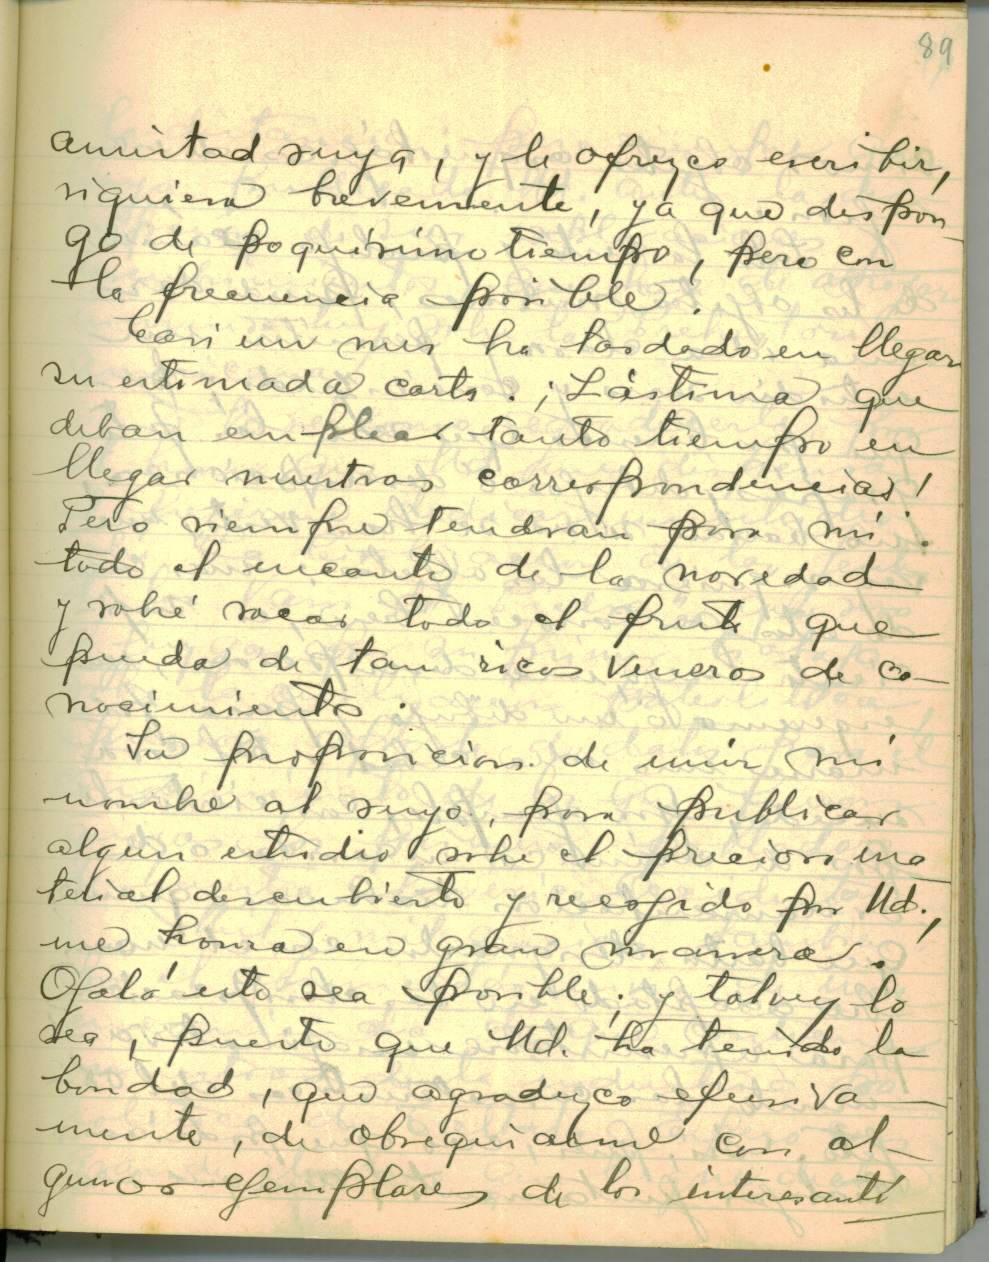 89
amistad suya, y le ofrezco escribir,
siquiera brevemente, ya que dispon-
go de poquísimo tiempo, pero con
la frecuencia posible.
Casi un mes ha tardado en llegar
su estimada carta. ¡Lástima que
deban emplear tanto tiempo en
llegar nuestras correspondencias!
Pero siempre tendran para mí
todo el encanto de la novedad
y sabré sacar todo el fruto que
pueda de tan ricos veneros de co-
nocimientos.
Su proposicion de unir mi
nombre al suyo, para publicar
algun estudio sobre el precioso ma
terial descubierto y recogido por Ud.,
me honra en gran manera.
Ojalá esto sea posible; y talvez lo
sea, puesto que Ud. ha tenido la
bondad, que agradezco efusiva-
mente, de obsequiarme con al-
gunos ejemplares de los interesantí